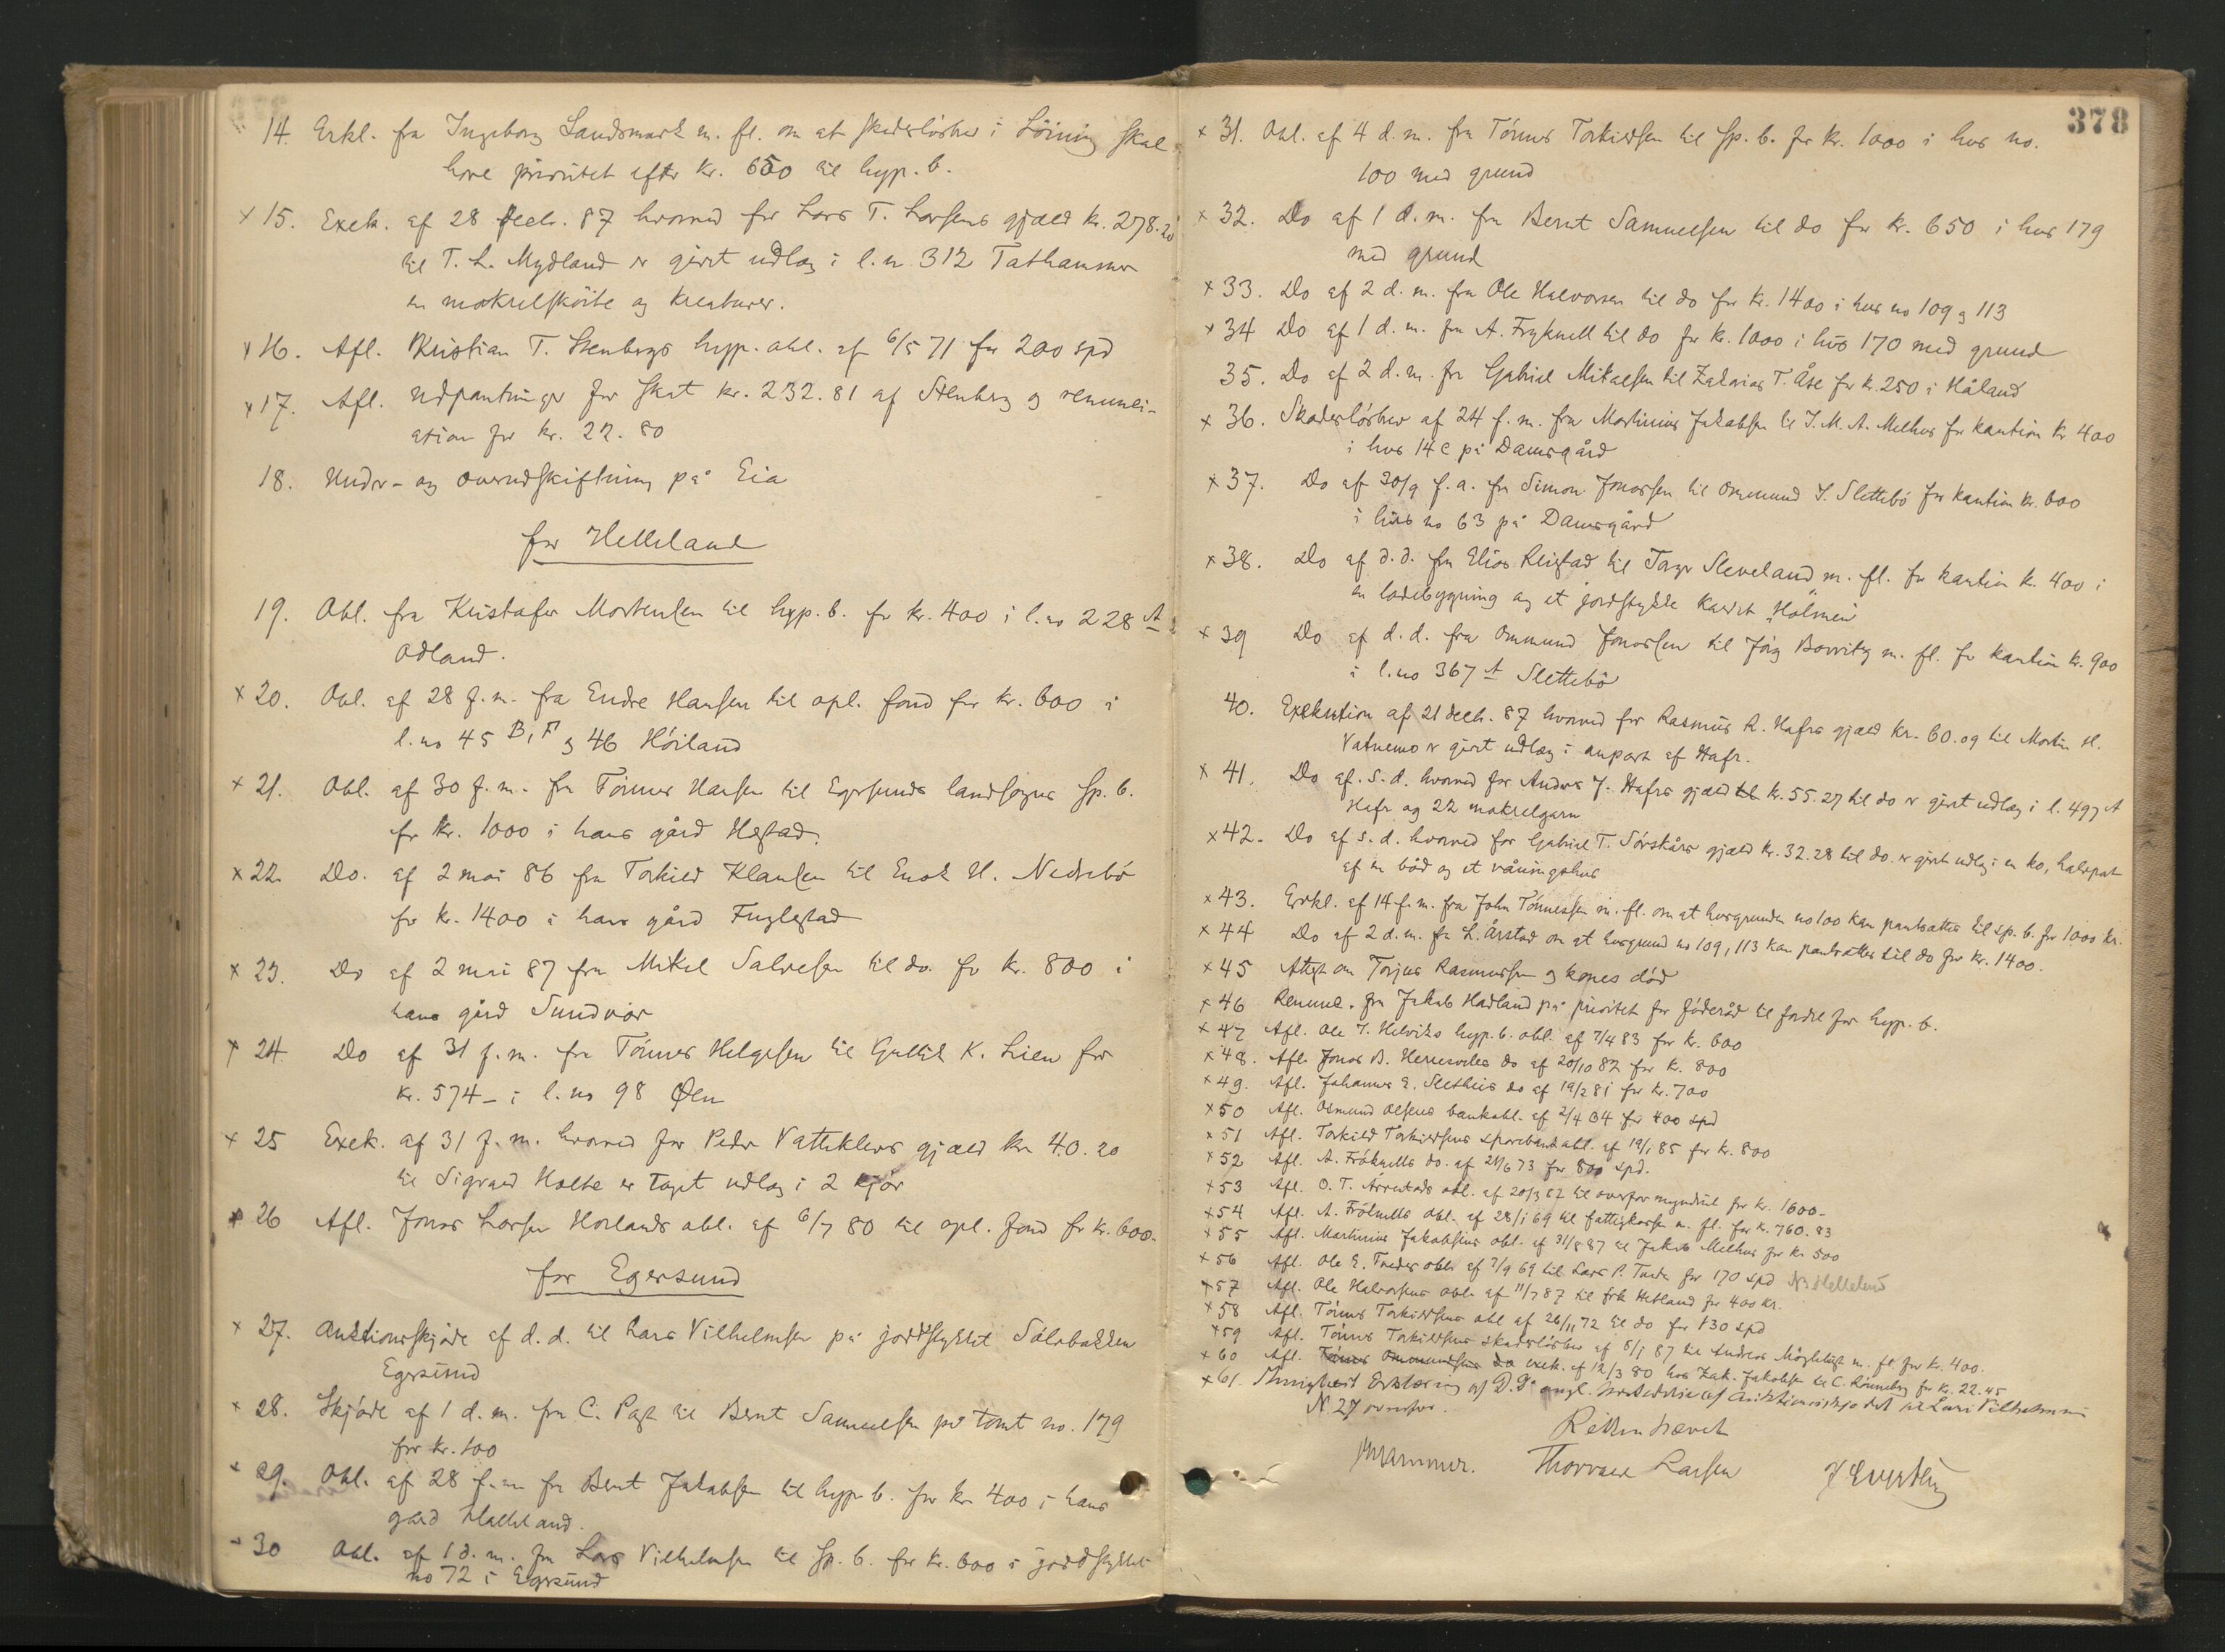 14. Erkl. fra Ingeborg Landsmark m. fl. om at skadesløsbrev i skal
have prioritet efter kr. 650 til hyp. b.
x 15. Exek. af 28 decb. 87 hvorved for Lars T. Larsens gjæld kr. 278.20
til T. L. Mydland er gjort udlæg i l. n 312 Tathammer
en makrelskøite og kreaturer.
x 16. Afl. Kristian T. Stenbergs hyp. obl. af 6/5 71 for 200 spd
x 17. Afl. Udpantninger for skat kr. 232.81 af Stenberg og renunci-
ation for kr. 22.80
18. Under- og overudskiftning på Eia
for Helleland
19. Obl. fra Kristofer Mortensen til hyp. b. for kr. 400 i l. no 228 A
Odland.
x 20. Obl. af 28 f. m. fra Endre Hansen til opl. fond for kr. 600 i
l. no 45 B, F og 46 Høiland
x 21. Obl. af 30 f. m. fra Tønnes Hansen til Egersunds landsogns sp. b.
for kr. 1000 i hans gård Hegstad.
x 22. Do. af 2 mai 86 fra Torkild Klausen til Enok H. Nedrebø
for kr. 1400 i hans gård Fuglestad
x 23. Do af 2 mai 87 fra Mikel Salvesen til do. for kr. 800 i
hans gård Sundvor
x 24. Do af 31 f. m. fra Tønnes Helgesen til K. Lien for
kr. 574 – i l. no 98 Øen
x 25 Exek. af 31 f. m. hvorved for Peder Vatteklevs gjæld kr 40.20
til Sigvard Holte er taget udlæg i 2 kjør
x 26 Afl. Jonas Larsen Horlands obl. af 6/7 80 til opl. fond for kr. 600.
for Egersund
x 27. Auktionsskjøde af d. d. til Lars Vilhelmsen på jordstykket Solebakken
Egersund
x 28. Skjøde af 1 d. m. fra C. til Bernt Samuelsen på tomt no. 179
for kr. 100
x 29. Obl. af 28 f. m fra Bernt Jakobsen til hyp. b. for kr 400 i hans
gård Helleland.
x 30 Obl. af 1 d. m. fra Lars Vilhelmsen til sp. b. for kr. 600 i jordstykket
no 72 i Egersund
378
x 31. Obl. af 4 d. m. fra Tønnes Torkildsen til sp. b. for kr. 1000 i hus no.
100 med grund
x 32. Do af 1 d. m. fra Bernt Samuelsen til do for kr. 650 i hus 179
med grund
x 33. Do af 2 d. m. fra Ole Halvorsen til do for kr. 1400 i hus no 109 og 113
x 34 Do af 1 d. m. fra A. til do for kr. 1000 i hus 170 med grund
35. Do af 2 d. m. fra Gabriel Mikaelsen til Zakarias T. Åse for kr. 250 i Håland
x 36. Skadesløsbrev af 24 f. m. fra Martinius Jakobsen til J. M. A. Melhus for kaution kr 400
i hus 14 c på Damsgård
x 37. Do af 30/9 f. a. fra Simon Jonassen til Ommund J. Slettebø for kaution kr. 600
i hus no 63 på Damsgård
x 38. Do af d. d. fra Elias Reigstad til Sleveland m. fl. for kaution kr. 400 i
en ladebygning og et jordstykke kaldet "Holmen"
x 39 Do af d. d. fra Ommund Jonassen til m. fl. for kaution kr. 900
i l. no 367 A Slettebø
40. Exekution af 21 decb. 87 hvorved for Rasmus R. Hafrs gjæld kr. 60.09 til Martin H.
Vatnemo er gjort udlæg i anpart af Hafr.
x 41. Do af s. d. hvorved for Anders J. Hafrs gjæld kr. 55.27 til do er gjort udlæg i l. 497 A
Hafr og 22 makrelgarn
x 42. Do af s. d. hvorved for Gabriel T. Sørskårs gjæld kr. 32.28 til do. er gjort udlæg i en ko, halvpart
af en båd og et våningshus
x 43. Erkl. af 14 f. m. fra John Tønnessen m. fl. om at husgrunden no 100 kan pantsættes til sp. b. for 1000 kr.
x 44 Do af 2 d. m. fra L. Årstad om at husgrund no 109, 113 kan pantsættes til do for kr. 1400.
x 45 Attest om Torjus Rasmussen og kones død
x 46 Renunc. fra Jakob Hadland på prioritet for føderåd til fordel for hyp. b.
x 47 Afl. Ole T. hyp. b. obl. af 7/4 83 for kr. 600
x 48. Afl. Jonas B. do af 20/10 82 for kr. 800
x 49. Afl. Johannes E. do af 19/2 81 for kr. 700
x 50 Afl. Osmund Olsens bankobl. af 2/4 84 for 400 spd
x 51 Afl. Torkild Torkildsens sparebankobl. af 19/1 85 for kr. 800
x 52 Afl. A. do. af 24/6 73 for 800 spd.
x 53 Afl. O. T. obl. af 20/3 82 til overformynderiet for kr. 1600.–
x 54 Afl. A. obl. af 28/1 69 til fattigkassen m. fl. for kr. 760.83
x 55 Afl. Martinius Jakobsens obl. af 31/8 87 til Jakob Melhus for kr 500
x 56 Afl. Ole E. obl. af 7/9 69 til Lars P. for 170 spd NB Helleland
x 57 Afl. Ole Halvorsens obl. af 11/7 87 til frk Hetland for 400 kr.
x 58 Afl. Tønnes Torkildsens obl af 26/11 72 til do for 130 spd
x 59 Afl. Tønnes Torkildsens skadesløsbrev af 8/1 87 til Anders m. fl for kr. 400.
x 60 Afl. Tønnes Ommundsens do exek. af 12/3 80 hos Zak. Jakobsen til C. for kr. 22.45
x 61. Erklæring af D. D. angl. af Auktionsskjødet til Lars Vilhelmsen
N 27 ovenfor.
Thorvald Larsen